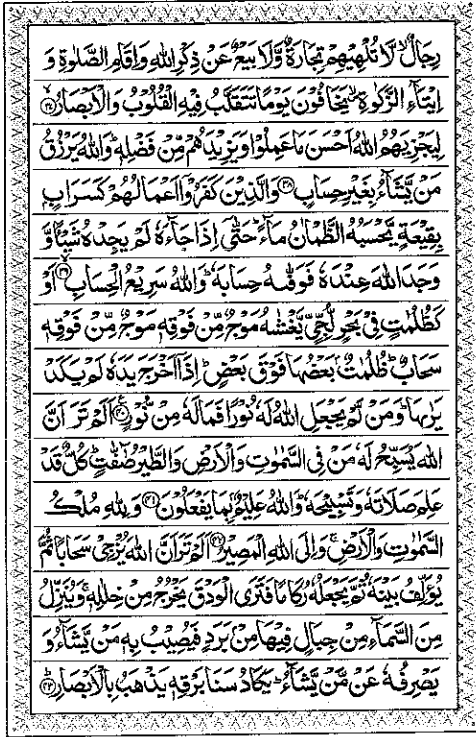 رِجَالٌ ۙ لَّا تُلْهِيْهِمْ تِجَارَةٌ وَّلَا بَيْعٌ عَنْ ذِكْرِ اللّٰهِ وَاِقَامِ الصَّلٰوةِ وَ
اِيْتَآءِ الزَّكٰوةِ ۙ يَخَافُوْنَ يَوْمًا تَتَقَلَّبُ فِيْهِ الْقُلُوْبُ وَالْاَبْصَارُ ﴿۳۷﴾
لِيَجْزِيَهُمُ اللّٰهُ اَحْسَنَ مَا عَمِلُوْا وَيَزِيْدَهُمْ مِّنْ فَضْلِهٖ ؕ وَاللّٰهُ يَرْزُقُ
مَنْ يَّشَآءُ بِغَيْرِ حِسَابٍ ﴿۳۸﴾ وَالَّذِيْنَ كَفَرُوْۤا اَعْمَالُهُمْ كَسَرَابٍۭ
بِقِيْعَةٍ يَّحْسَبُهُ الظَّمْاٰنُ مَآءً ؕ حَتّٰۤى اِذَا جَآءَهٗ لَمْ يَجِدْهُ شَيْـًٔا وَّ
وَجَدَ اللّٰهَ عِنْدَهٗ فَوَفّٰىهُ حِسَابَهٗ ؕ وَاللّٰهُ سَرِيْعُ الْحِسَابِ ﴿۳۹﴾ اَوْ
كَظُلُمٰتٍ فِيْ بَحْرٍ لُّجِّيٍّ يَّغْشٰىهُ مَوْجٌ مِّنْ فَوْقِهٖ مَوْجٌ مِّنْ فَوْقِهٖ
سَحَابٌ ؕ ظُلُمٰتٌۢ بَعْضُهَا فَوْقَ بَعْضٍ ؕ اِذَاۤ اَخْرَجَ يَدَهٗ لَمْ يَكَدْ
يَرٰىهَا ؕ وَمَنْ لَّمْ يَجْعَلِ اللّٰهُ لَهٗ نُوْرًا فَمَا لَهٗ مِنْ نُّوْرٍ ﴿۴۰﴾ اَلَمْ تَرَ اَنَّ
اللّٰهَ يُسَبِّحُ لَهٗ مَنْ فِي السَّمٰوٰتِ وَالْاَرْضِ وَالطَّيْرُ صٰٓفّٰتٍ ؕ كُلٌّ قَدْ
عَلِمَ صَلَاتَهٗ وَتَسْبِيْحَهٗ ؕ وَاللّٰهُ عَلِيْمٌۢ بِمَا يَفْعَلُوْنَ ﴿۴۱﴾ وَلِلّٰهِ مُلْكُ
السَّمٰوٰتِ وَالْاَرْضِ ۚ وَاِلَى اللّٰهِ الْمَصِيْرُ ﴿۴۲﴾ اَلَمْ تَرَ اَنَّ اللّٰهَ يُزْجِيْ سَحَابًا ثُمَّ
يُؤَلِّفُ بَيْنَهٗ ثُمَّ يَجْعَلُهٗ رُكَامًا فَتَرَى الْوَدْقَ يَخْرُجُ مِنْ خِلٰلِهٖ ۚ وَيُنَزِّلُ
مِنَ السَّمَآءِ مِنْ جِبَالٍ فِيْهَا مِنْۢ بَرَدٍ فَيُصِيْبُ بِهٖ مَنْ يَّشَآءُ وَ
يَصْرِفُهٗ عَنْ مَّنْ يَّشَآءُ ؕ يَكَادُ سَنَا بَرْقِهٖ يَذْهَبُ بِالْاَبْصَارِ ﴿۴۳﴾